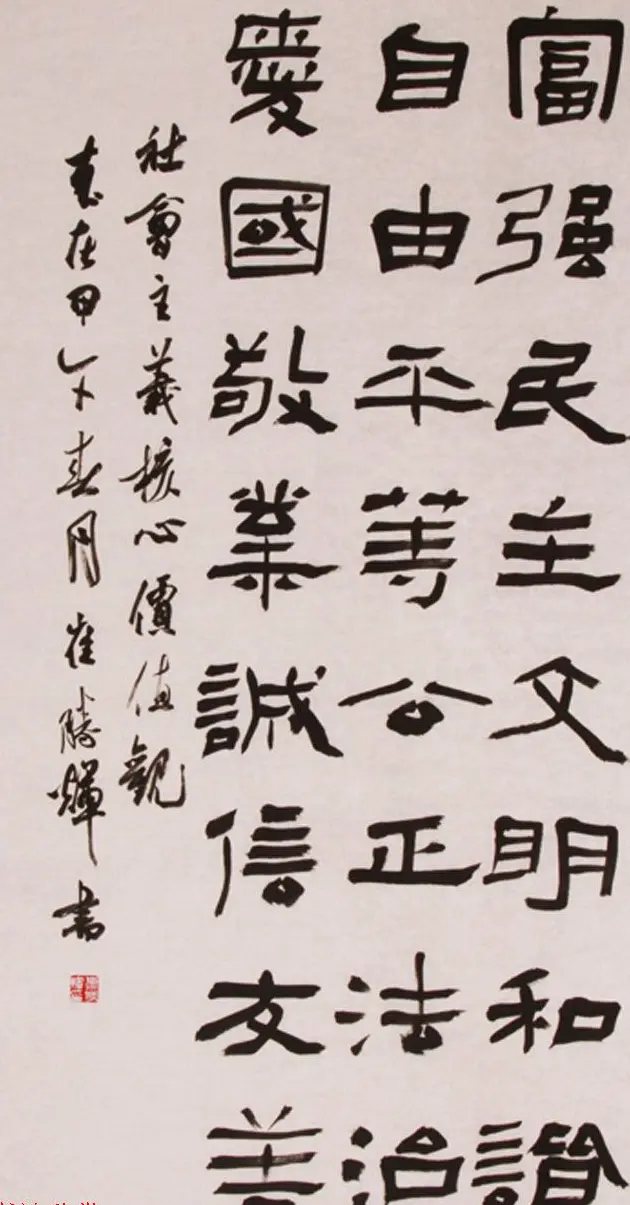 富强民主文明和諧
自由平等公正法治
愛國敬業誠信友善
社會主義核心價值觀
崴在甲午春月崔勝輝書